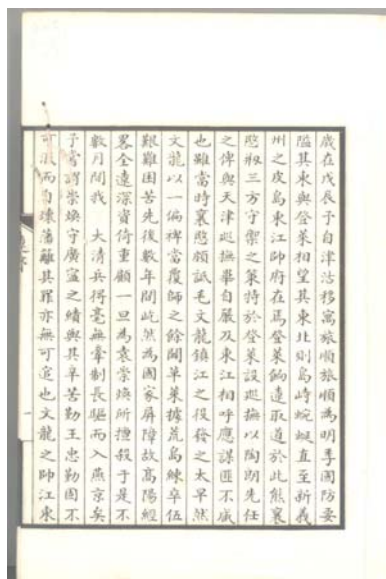 歲在戊辰予自津沽移寓旅順旅順為明季國防要
隘其東與登萊相望其東北則島嶼蜿蜒直至新義
州之皮島東江帥府在焉登萊餉運取道於此熊襄
愍㪅三方守禦之策特於登萊設巡撫以陶朗先任
之俾與天津巡撫畢自嚴及東江相呼應謀匪不臧
也雖當時襄愍頗詆毛文龍鎮江之役發之太早然
文龍以一偏裨當覆師之餘闢草萊據荒島練卒伍
艱難困苦先後數年間屹然為國家屏障故高陽經
畧全遼深資倚重顧一旦為袁崇煥所擅殺于是不
數月間我 大清兵得毫無牽制長驅而入燕京矣
予嘗謂崇煥守廣寧之績與其辛苦勤王忠勤固不
可沒而自壞藩籬其罪亦無可逭也文龍之帥江東
序
一